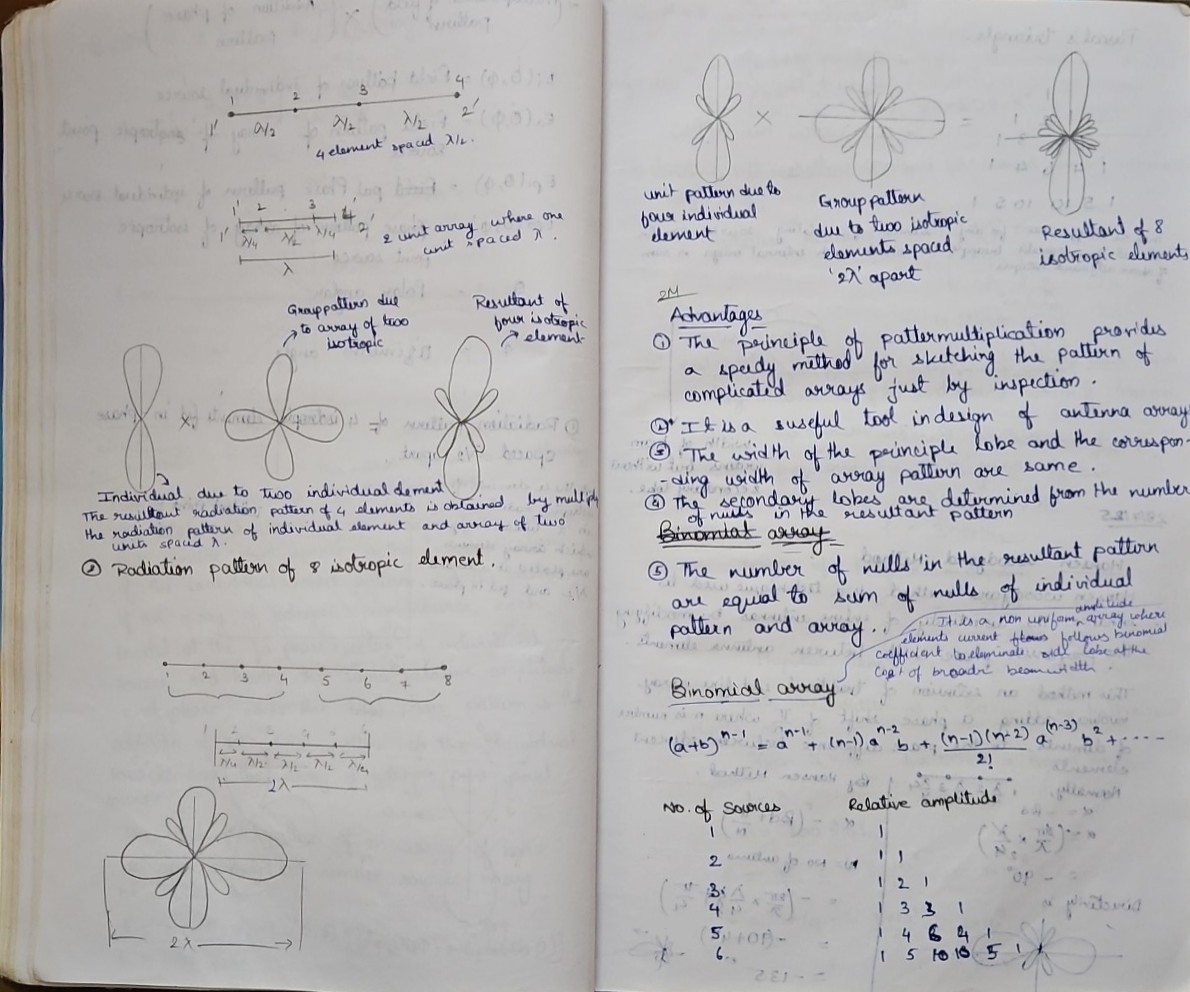 1 2 3 4
1' λ/2 λ/2 λ/2 2'
4 element spaced λ/2.
1' 2 3 4
1' λ/4 λ/2 λ/4 2'
λ
2 unit array where one
unit spaced λ.
Group pattern due
to array of two
isotropic
Resultant of
four isotropic
element
×
Individual due to two individual element
The resultant radiation pattern of 4 elements is obtained by multiply
the radiation pattern of individual element and array of two
units spaced λ.
② Radiation pattern of 8 isotropic element.
1 2 3 4 5 6 7 8
λ/4 λ/2 λ/2 λ/2 λ/4
2λ
2λ
× =
unit pattern due to
four individual
element
Group pattern
due to two isotropic
elements spaced
'2λ' apart
Resultant of 8
isotropic elements
2M
Advantages
① The principle of patternmultiplication provides
a speedy method for sketching the pattern of
complicated arrays just by inspection.
② It is a suseful tool in design of antenna array
③ The width of the principle lobe and the correspon-
-ding width of array pattern are same.
④ The secondary lobes are determined from the number
of nulls in the resultant pattern
Binomial array
⑤ The number of nulls in the resultant pattern
are equal to sum of nulls of individual
pattern and array.
It is a non uniform amplitude array where
elements current flows follows binomial
coefficient to eleminate side lobe at the
cost of broader beamwidth.
Binomial array
(a+b)^n-1 = a^n-1 + (n-1) a^n-2 b + (n-1)(n-2)/2! a^(n-3) b² + ....
No. of Sources Relative amplitude
1 1
2 1 1
3 1 2 1
4 1 3 3 1
5 1 4 6 4 1
6 1 5 10 10 5 1